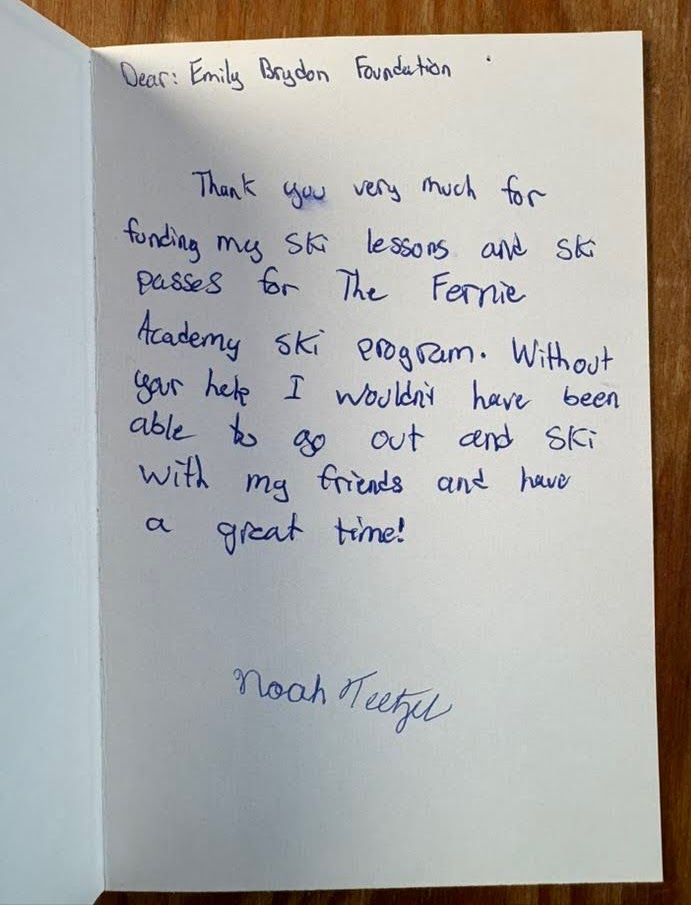 Dear: Emily Brydon Foundation
Thank you very much for
funding my ski lessons and ski
passes for The Fernie
Academy ski program. Without
your help I wouldn't have been
able to go out and ski
with my friends and have
a great time!
Noah Teetzel